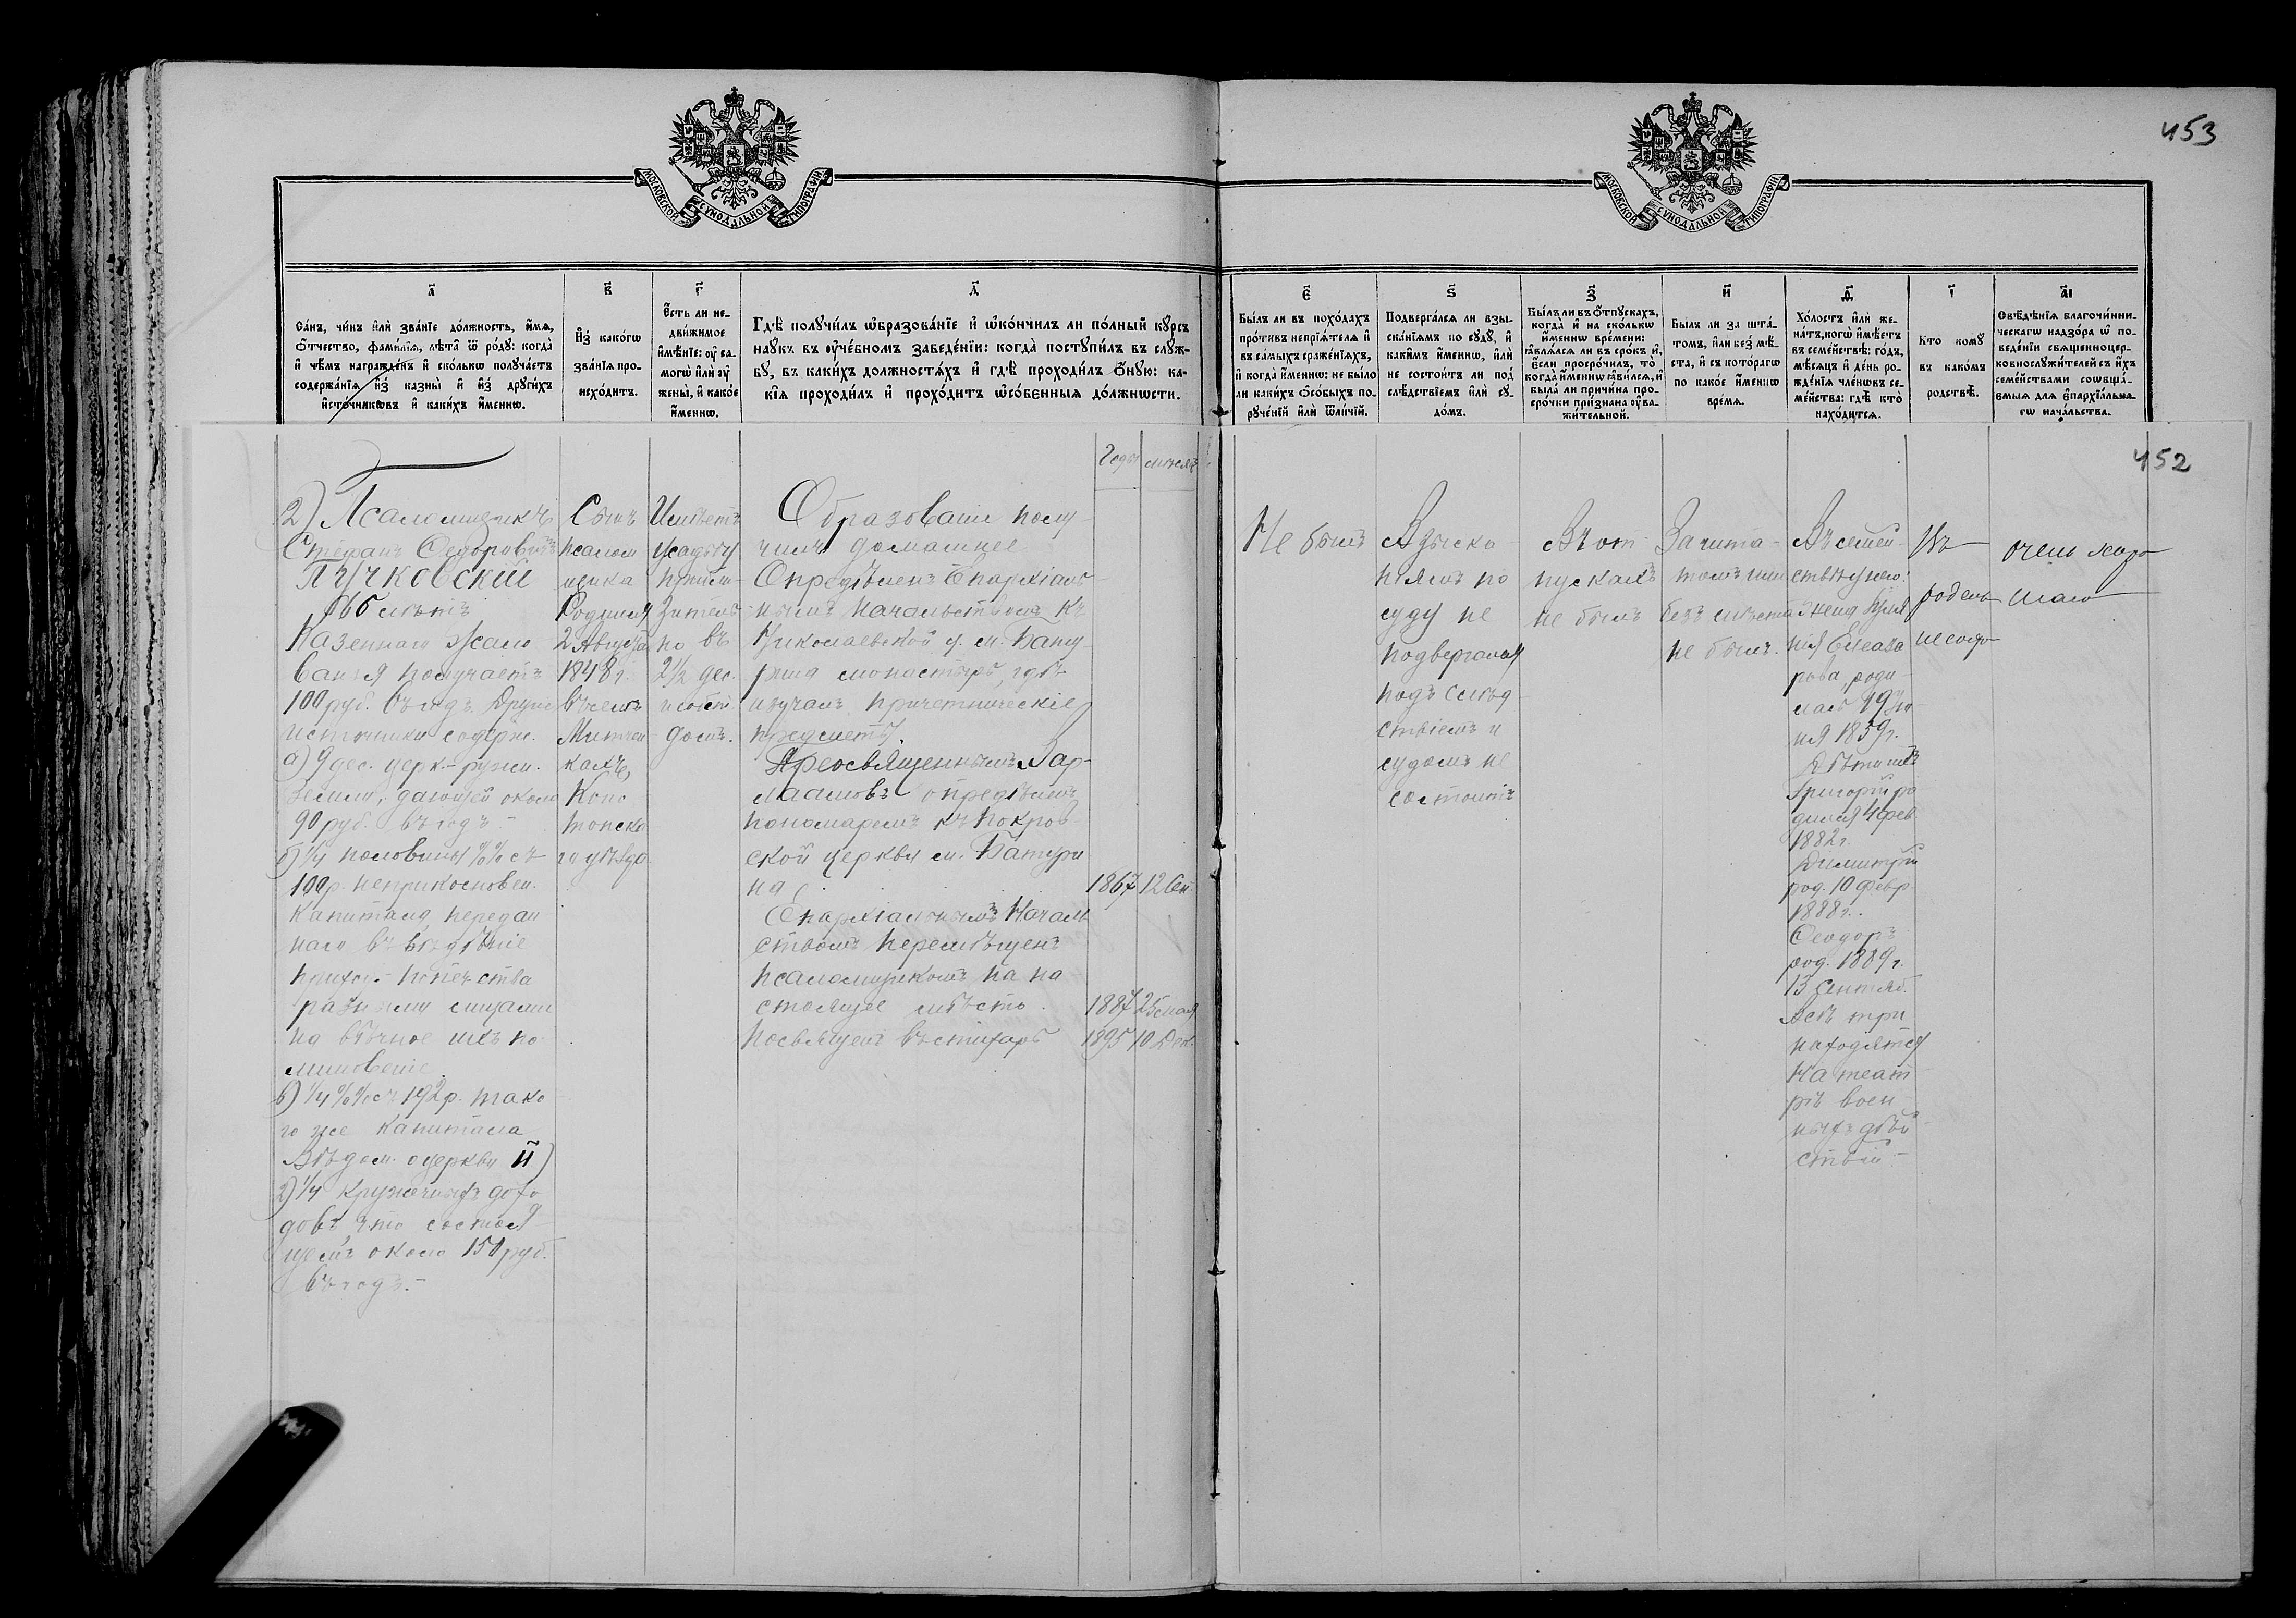 453
МОСКОВСКОЙ СѴНОДАЛЬНОЙ ТИПОГРАФІИ
МОСКОВСКОЙ СѴНОДАЛЬНОЙ ТИПОГРАФІИ
а҃
Са́нъ, чи́нъ и҆лѝ зва́нїе до́лжность, и҆́мѧ,
ѻ҆́тчество, фами́лїѧ, лѣ́та ѿ ро́дꙋ: когда̀
и҆ чѣ́мъ награжде́нъ и҆ ско́лькѡ полꙋча́етъ
содержа́нїѧ и҆з̾ казны̀ и҆ и҆з̾ дрꙋги́хъ
и҆сто́чникѡвъ и҆ каки́хъ и҆́меннѡ.
в҃
И҆з̾ како́гѡ
зва́нїѧ про-
исхо́дитъ.
г҃
Е҆́сть ли не-
дви́жимое
и҆мѣ́нїе: ᲂу҆ са-
могѡ̀ и҆лѝ ᲂу҆
жены̀, и҆ како́е
и҆́меннѡ.
д҃
Гдѣ̀ полꙋчи́лъ ѡ҆бразова́нїе и҆ ѡ҆ко́нчилъ ли по́лный кꙋ́рсъ
наꙋ́къ въ ᲂу҆че́бномъ заведе́нїи: когда̀ постꙋпи́лъ въ слꙋ́ж-
бꙋ, въ каки́хъ должностѧ́хъ и҆ гдѣ̀ проходи́лъ ѻ҆́нꙋю: ка-
кі́ѧ проходи́лъ и҆ прохо́дитъ ѡ҆со́бенныѧ до́лжнѡсти.
є҃
Бы́лъ ли въ похо́дахъ
про́тивъ непрїѧ́телѧ и҆
въ са́мыхъ сраже́нїѧхъ,
и҆ когда̀ и҆́меннѡ: не бы́ло
ли каки́хъ ѻ҆со́быхъ по-
рꙋче́нїй и҆лѝ ѿли́чїй.
ѕ҃
Подверга́лсѧ ли взы-
ска́нїѧмъ по сꙋдꙋ̀, и҆
каки́мъ и҆́меннѡ, и҆лѝ
не состои́тъ ли под̾
слѣ́дствїемъ и҆лѝ сꙋ-
до́мъ.
з҃
Бы́лъ ли въ ѻ҆́тпꙋскахъ,
когда̀ и҆ на ско́лькѡ
и҆́меннѡ вре́мени:
ꙗ҆влѧ́лсѧ ли въ сро́къ и҆,
є҆́сли просро́чилъ, то̀
когда̀ и҆́меннѡ ꙗ҆ви́лсѧ, и҆
была̀ ли причи́на про-
сро́чки при́знана ᲂу҆ва-
жи́тельной.
и҃
Бы́лъ ли за шта́-
томъ, и҆лѝ без̾ мѣ́-
ста, и҆ съ кото́рагѡ
по како́е и҆́меннѡ
вре́мѧ.
ѳ҃
Хо́лостъ и҆лѝ же-
на́тъ, когѡ̀ и҆мѣ́етъ
въ семе́йствѣ: го́дъ,
мѣ́сѧцъ и҆ де́нь ро-
жде́нїѧ чле́нѡвъ се-
ме́йства: гдѣ̀ кто̀
нахо́дитсѧ.
і҃
Кто̀ комꙋ̀
въ како́мъ
родствѣ̀.
а҃і
Свѣ́дѣнїѧ благочи́нни-
ческагѡ надзо́ра ѡ҆ по-
веде́нїи свѧщенноцер-
ковнослꙋжи́телей съ и҆́хъ
семе́йствами соѡбща́-
ємыѧ длѧ є҆парxїа́льна-
гѡ нача́льства.
452
2) Псаломщикъ
Стефанъ Ѳедоровичъ
Пучковскій
лѣтъ
Казеннаго жало
ванья получаетъ
100 руб. въ годъ. Другіе
источники содерж.
а) 9 дес. церк.-ружн.
земли, дающей около
90 руб. въ годъ.-
б) 1/4 половины %% съ
100 р. неприкосновен.
капитала передан
наго въ вѣдѣніе
приход. попеч-ства
разными лицами
на вѣчное ихъ по
миновеніе.
в) 1/4 %% съ 192 р. тако
го же капитала
Вѣдом. о церкви и҃)
г) 1/4 кружечныхъ дохо
довъ что составл
около 150 руб.
въ годъ.-
Сынъ
псалом
щика
Родился
2 Августа
1848 г.
въ селѣ
Митчен
кахъ,
Коно
топска
го уѣзда
Имѣетъ
усадьбу
прибли-
зитель-
но въ
2 1/2 дес.
и собст.
домъ.
Годы мѣсяцъ
Образованіе полу
чилъ домашнее
Опредѣленъ Епархіаль
нымъ Начальствомъ къ
Николаевской ц. м. Бату
рина монастырь, гдѣ
изучалъ причетническіе
предметы.
Преосвященнымъ Вар-
лаамовъ опредѣленъ
пономаремъ къ Покров
ской церкви м. Батури
на 1867 12 Сен.
Епархіальнымъ Началь
ствомъ перемѣщенъ
псаломщикомъ на на
стоящее мѣсто. 1887 25 мая
Посвященъ въ стихарь 1895 10 Дек.
Не былъ
Взыска
ніямъ по
суду не
подвергался
подъ слѣд
ствіемъ и
судомъ не
состоитъ
Въ от
пускахъ
не былъ
За шта-
томъ или
безъ мѣста
не былъ.
Въ семей
ствѣ у него:
жена
Елеаза
рова, роди
лась 19
1859 г.
Дѣти ихъ
Григорій ро
дился 4 фев
1882 г.
Димитрій
род. 10 февр.
1888 г.
Ѳеодоръ
род. 1889 г.
13 Сентяб.
Всѣ три
находятся
на теат
рѣ воен
ныхъ дѣй
ствій.-
Въ
очень хоро
шаго